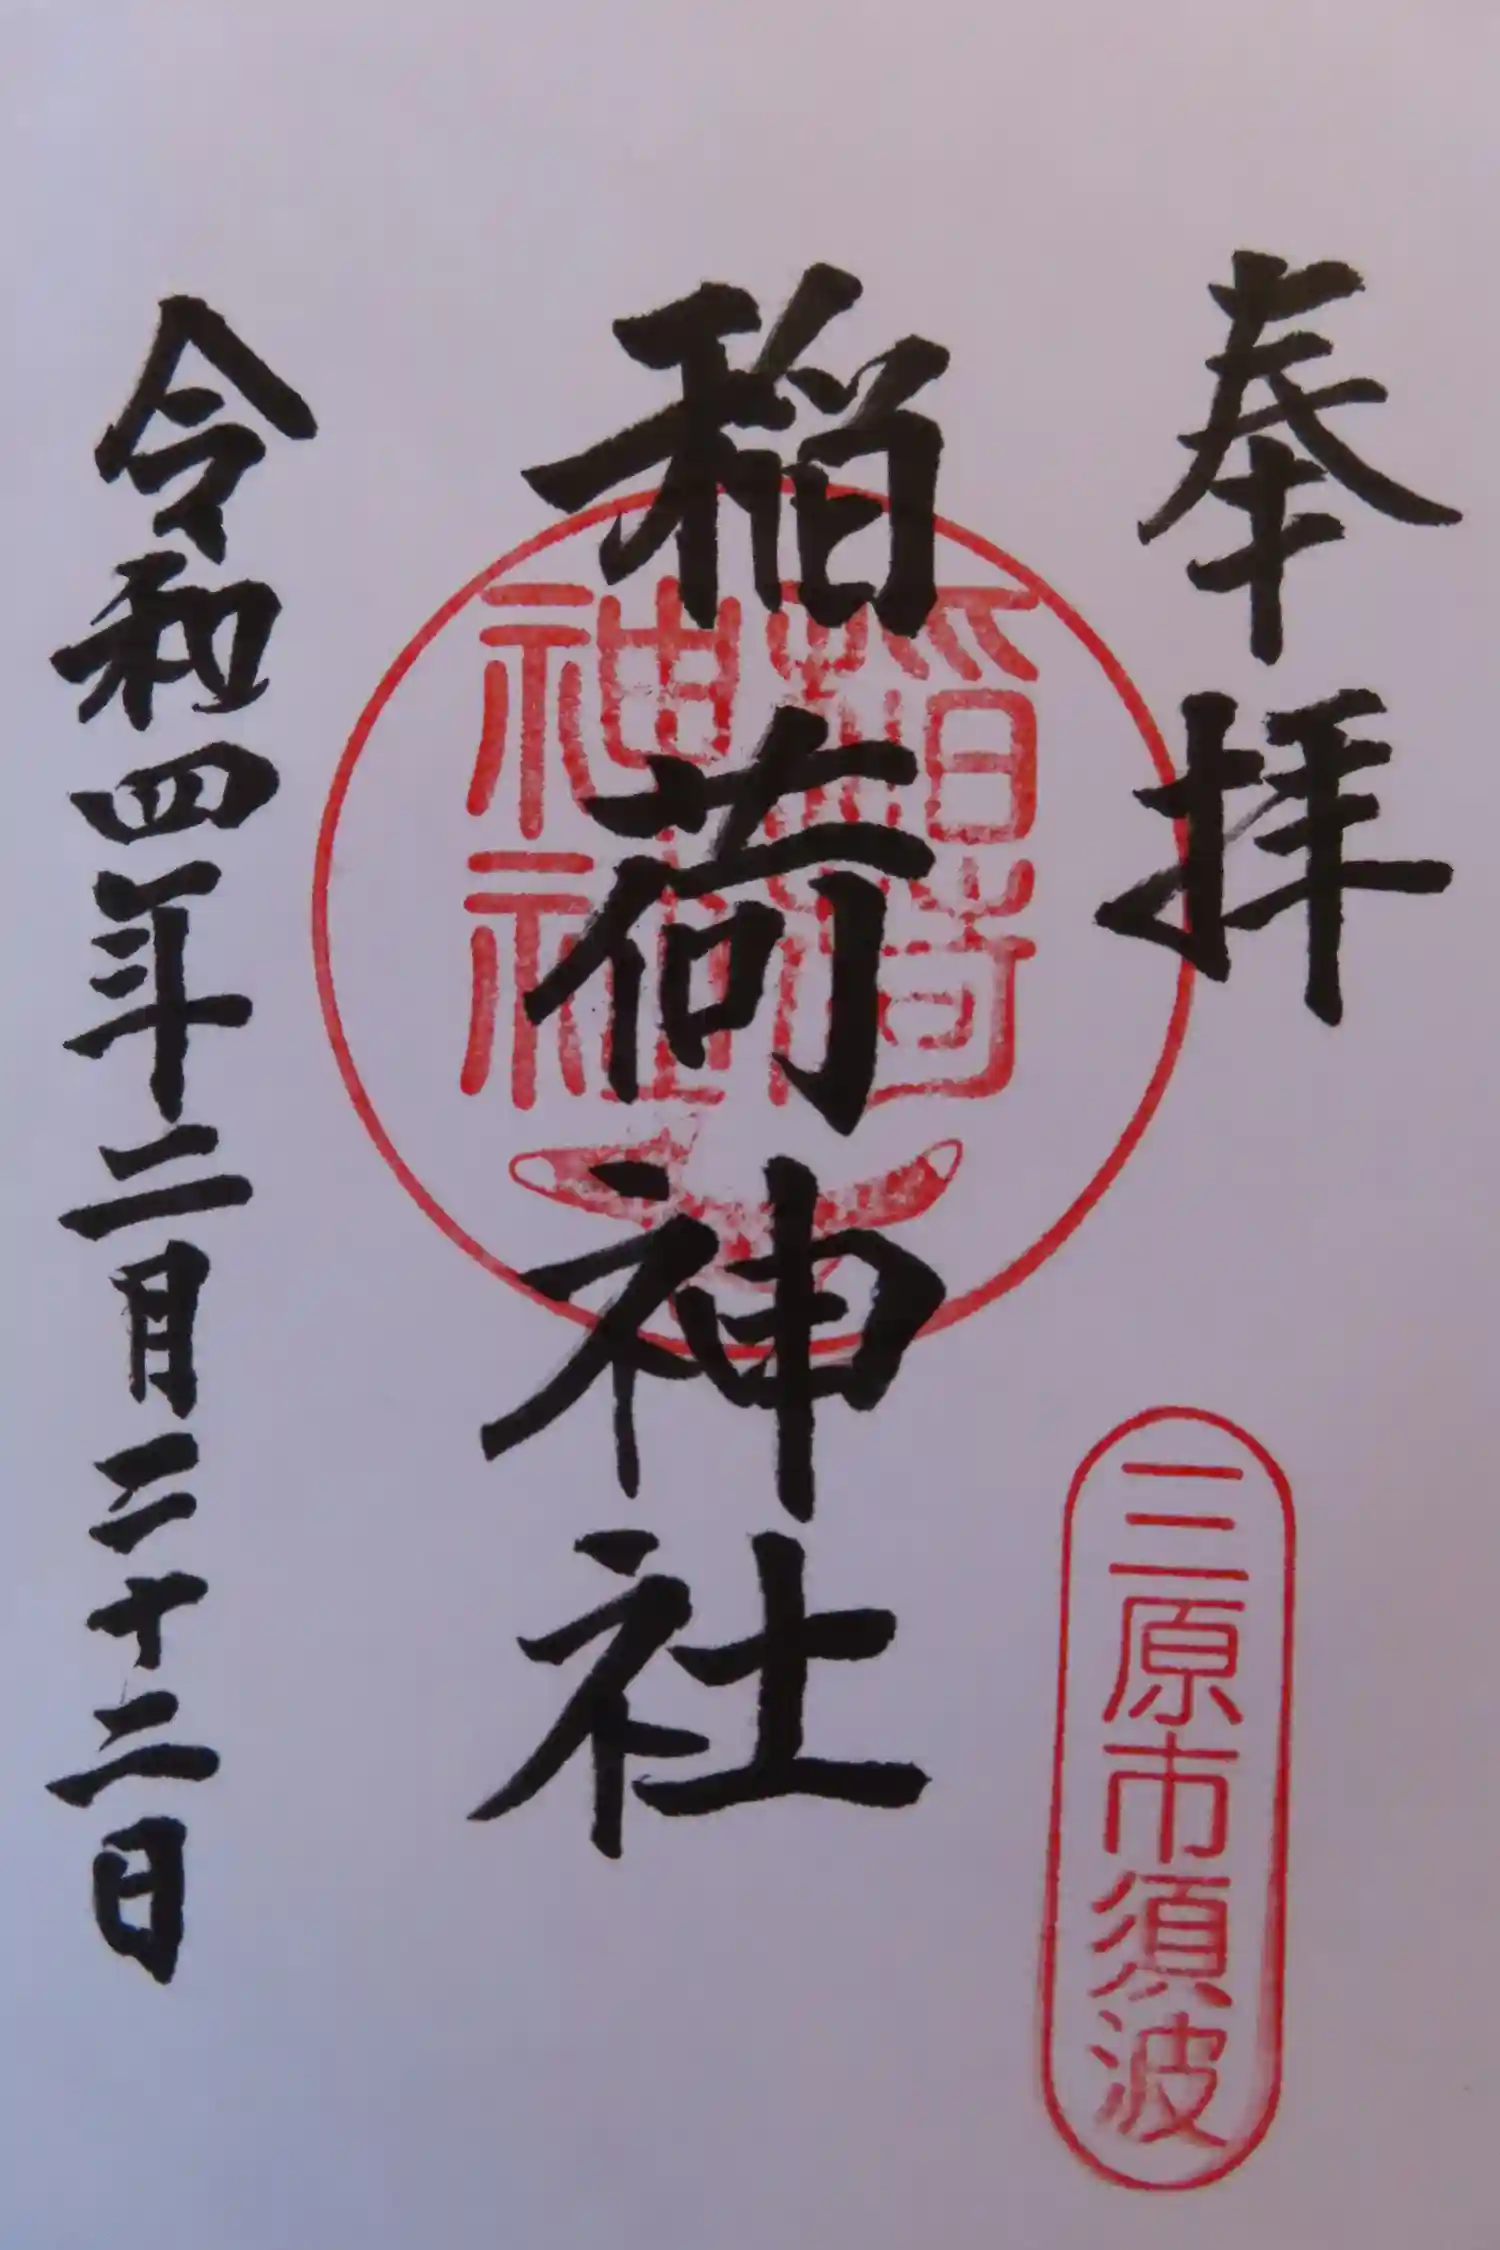 奉拝
三原市須波
稲荷神社
稲荷神社
令和四年二月二十二日